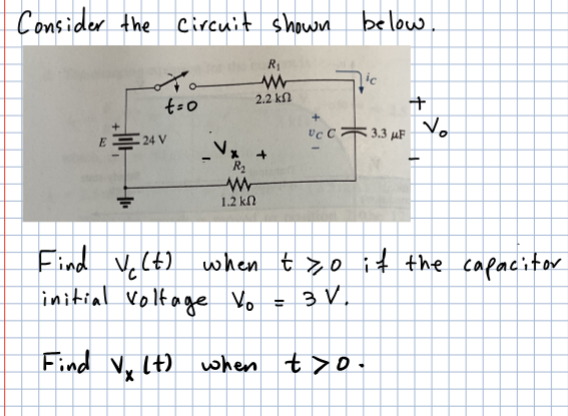 Consider the circuit shown below.
R1
iC
t=0
2.2 kΩ
+
+
+
vC C
3.3 μF
Vo
E
24 V
- Vx +
-
-
-
R2
1.2 kΩ
Find Vc(t) when t ≥ 0 if the capacitor
initial voltage Vo = 3 V.
Find Vx (t) when t > 0.